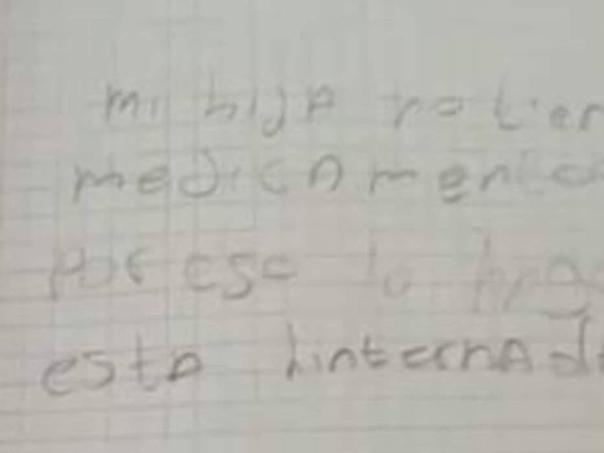 mi hija no tien
medicamento
por eso lo hag
esta hinternad